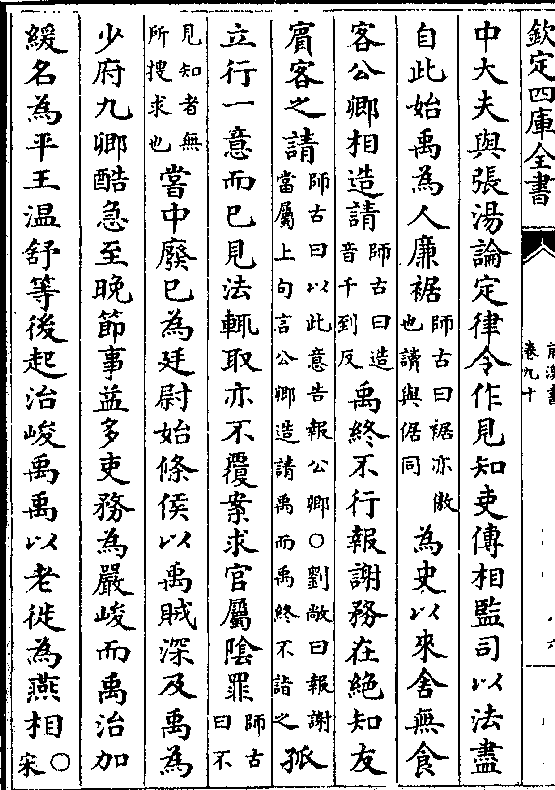 欽定四庫全書
前漢書
卷九十
中大夫與張湯論定律令作見知吏傳相監司以法盡
自此始禹為人廉裾師古曰裾亦傲也讀與倨同為吏以來舍無食
客公卿相造請師古曰造音千到反禹終不行報謝務在絕知友
賔客之請師古曰以此意告報公卿○劉敞曰報謝當屬上句言公卿造請禹而禹終不詣之孤
立行一意而已見法輒取亦不覆案求官屬陰罪師古曰不
見知者無所搜求也嘗中廢已為廷尉始條侯以禹賊深及禹為
少府九卿酷急至晚節事益多吏務為嚴峻而禹治加
緩名為平王温舒等後起治峻禹禹以老徙為燕相○宋